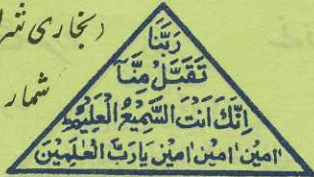 (بخاری
شمار
رَبَّنَا
تَقَبَّلْ مِنَّا
اِنَّكَ اَنْتَ السَّمِيْعُ الْعَلِيْمُ
اٰمِيْن' اٰمِيْن' اٰمِيْن يَارَبَّ الْعٰلَمِيْنَ